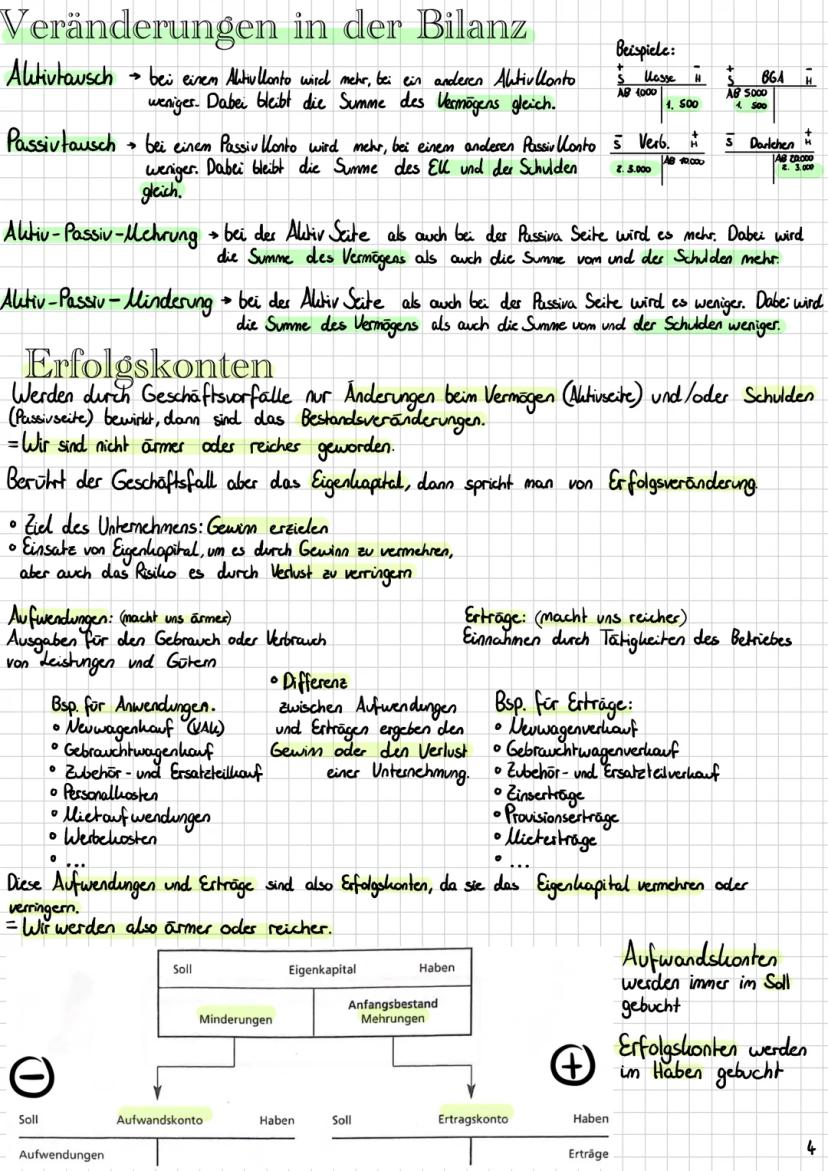 Veränderungen in der Bilanz
Beispiele:
Aktivtausch → bei einem Aktivkonto wird mehr, bei ein anderen Aktivkonto
weniger. Dabei bleibt die Summe des Vermögens gleich.
+ S Kasse H −
AB 1000 | 1. 500
+ S BGA H −
AB 5000
1. 500
Passivtausch → bei einem Passivkonto wird mehr, bei einem anderen Passivkonto
weniger. Dabei bleibt die Summe des EK und der Schulden
gleich.
− S Verb. H +
2. 3.000 | AB 10.000
− S Darlehen H +
AB 20.000
2. 3.000
Aktiv-Passiv-Mehrung → bei der Aktiv Seite als auch bei der Passiva Seite wird es mehr. Dabei wird
die Summe des Vermögens als auch die Summe vom und der Schulden mehr.
Aktiv-Passiv-Minderung → bei der Aktiv Seite als auch bei der Passiva Seite wird es weniger. Dabei wird
die Summe des Vermögens als auch die Summe vom und der Schulden weniger.
Erfolgskonten
Werden durch Geschäftsvorfälle nur Änderungen beim Vermögen (Aktivseite) und/oder Schulden
(Passivseite) bewirkt, dann sind das Bestandsveränderungen.
= Wir sind nicht ärmer oder reicher geworden.
Berührt der Geschäftsfall aber das Eigenkapital, dann spricht man von Erfolgsveränderung.
• Ziel des Unternehmens: Gewinn erzielen
• Einsatz von Eigenkapital, um es durch Gewinn zu vermehren,
aber auch das Risiko es durch Verlust zu verringern
Aufwendungen: (macht uns ärmer)
Ausgaben für den Gebrauch oder Verbrauch
von Leistungen und Gütern
Erträge: (macht uns reicher)
Einnahmen durch Tätigkeiten des Betriebes
Bsp. für Anwendungen.
• Neuwagenkauf (VAK)
• Gebrauchtwagenkauf
• Zubehör- und Ersatzteilkauf
• Personalkosten
• Mietaufwendungen
• Werbekosten
• ...
• Differenz
zwischen Aufwendungen
und Erträgen ergeben den
Gewinn oder den Verlust
einer Unternehmung.
Bsp. für Erträge:
• Neuwagenverkauf
• Gebrauchtwagenverkauf
• Zubehör- und Ersatzteilverkauf
• Zinserträge
• Provisionserträge
• Mieterträge
• ...
Diese Aufwendungen und Erträge sind also Erfolgskonten, da sie das Eigenkapital vermehren oder
verringern.
= Wir werden also ärmer oder reicher.
Soll Eigenkapital Haben
Minderungen
Anfangsbestand
Mehrungen
−
+
Soll Aufwandskonto Haben
Aufwendungen
Soll Ertragskonto Haben
Erträge
Aufwandskonten
werden immer im Soll
gebucht
Erfolgskonten werden
im Haben gebucht
4